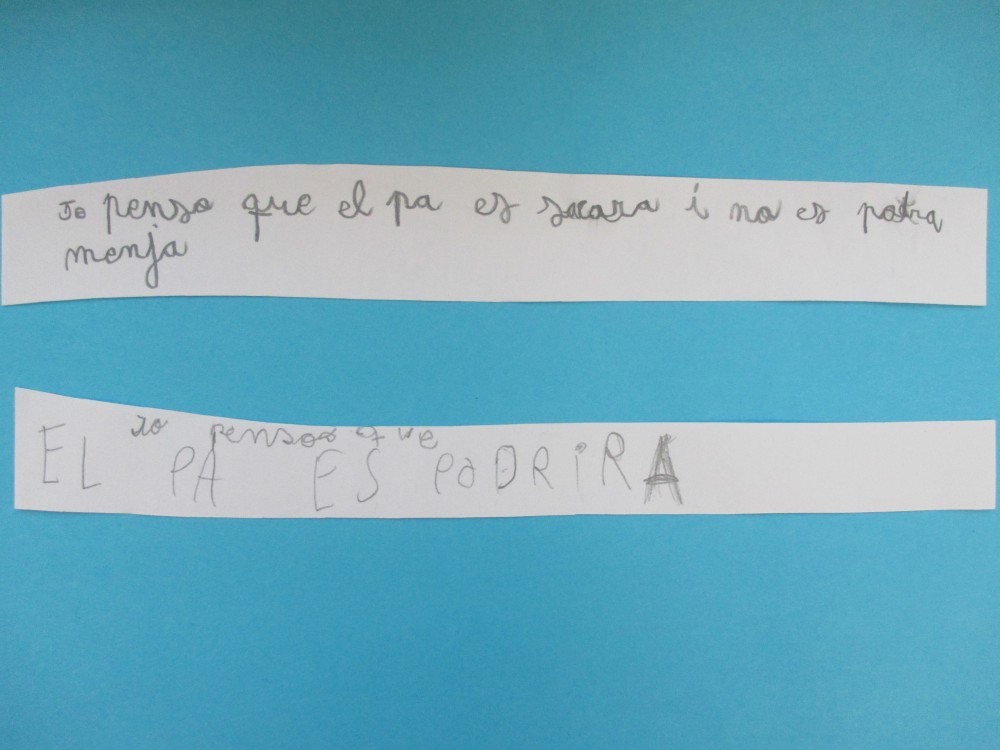 Jo penso que el pa es sacara i no es potra
menja
Jo penso que
EL PA ES PODRiRA